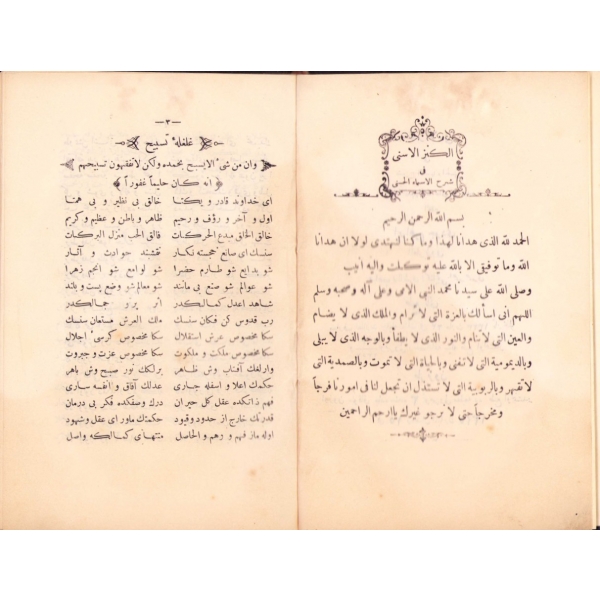 الكنز الاسنى
فى
شرح الاسماء الحسنى
بسم الله الرحمن الرحيم
الحمد لله الذى هدانا لهذا وما كنا لنهتدى لولا ان هدانا
الله وما توفيقى الا بالله عليه توكلت واليه انيب
وصلى الله على سيدنا محمد النبى الامى وعلى آله وصحبه وسلم
اللهم انى اسألك بالعزة التى لا ترام والملك الذى لا يضام
والعين التى لا تنام والنور الذى لا يطفأ وبالوجه الذى لا يبلى
وبالديمومية التى لا تفنى وبالحياة التى لا تموت وبالصمدية التى
لا تقهر وبالربوبية التى لا تستذل ان تجعل لنا فى امورنا فرجاً
ومخرجاً حتى لا نرجو غيرك يا ارحم الراحمين
—٣—
غلغلهٔ تسبيح
وان من شىء الا يسبح بحمده ولكن لا تفقهون تسبيحهم
انه كان حليماً غفوراً
اى خداوند قادر و يكتا خالق بى نظير و بى همتا
اول و آخر و رؤف و رحيم ظاهر و باطن و عظيم و كريم
خالق الخلق مبدع الحركات فالق الحب منزل البركات
سنك اى صانع خجسته نكار نقشنه حوادث و آثار
شو بدايع شو طارم خضرا شو لوامع شو انجم زهرا
شو عوالم شو صنع بى مانند شو معالم شو وضع پست و بلند
شاهد اعدل كمالكدر اثر پرتو جمالكدر
رب قدوس كن فكان سنسك ملك العرش مستعان سنسك
سكا مخصوص عرش استقلال سكا مخصوص كرسىء اجلال
سكا مخصوص ملك و ملكوت سكا مخصوص عزت و جبروت
وارلغك آفتاب وش ظاهر برلكك نور صبح وش باهر
حكمك اعلا و اسفله جارى عدلك آفاق و انفسه سارى
فهم ذاتكده عقل كل حيران درك وصفكده فكر بى درمان
قدرتك خارج از حدود و قيود حكمتك ماوراى عقل و شهود
اوله ماز فهم و وهم و الحاصل منتهاى كمالكه واصل